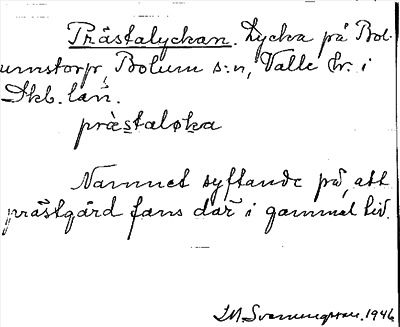 Prästalyckan. Lycka på Bol-
umstorp, Bolum s:n, Valle hr. i
Skb. län.
prästaløka
Namnet syftande på, att
prästgård fans där i gammal tid.
1946